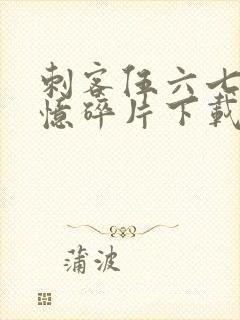 刺客伍六七
憶碎片下載
蒲波